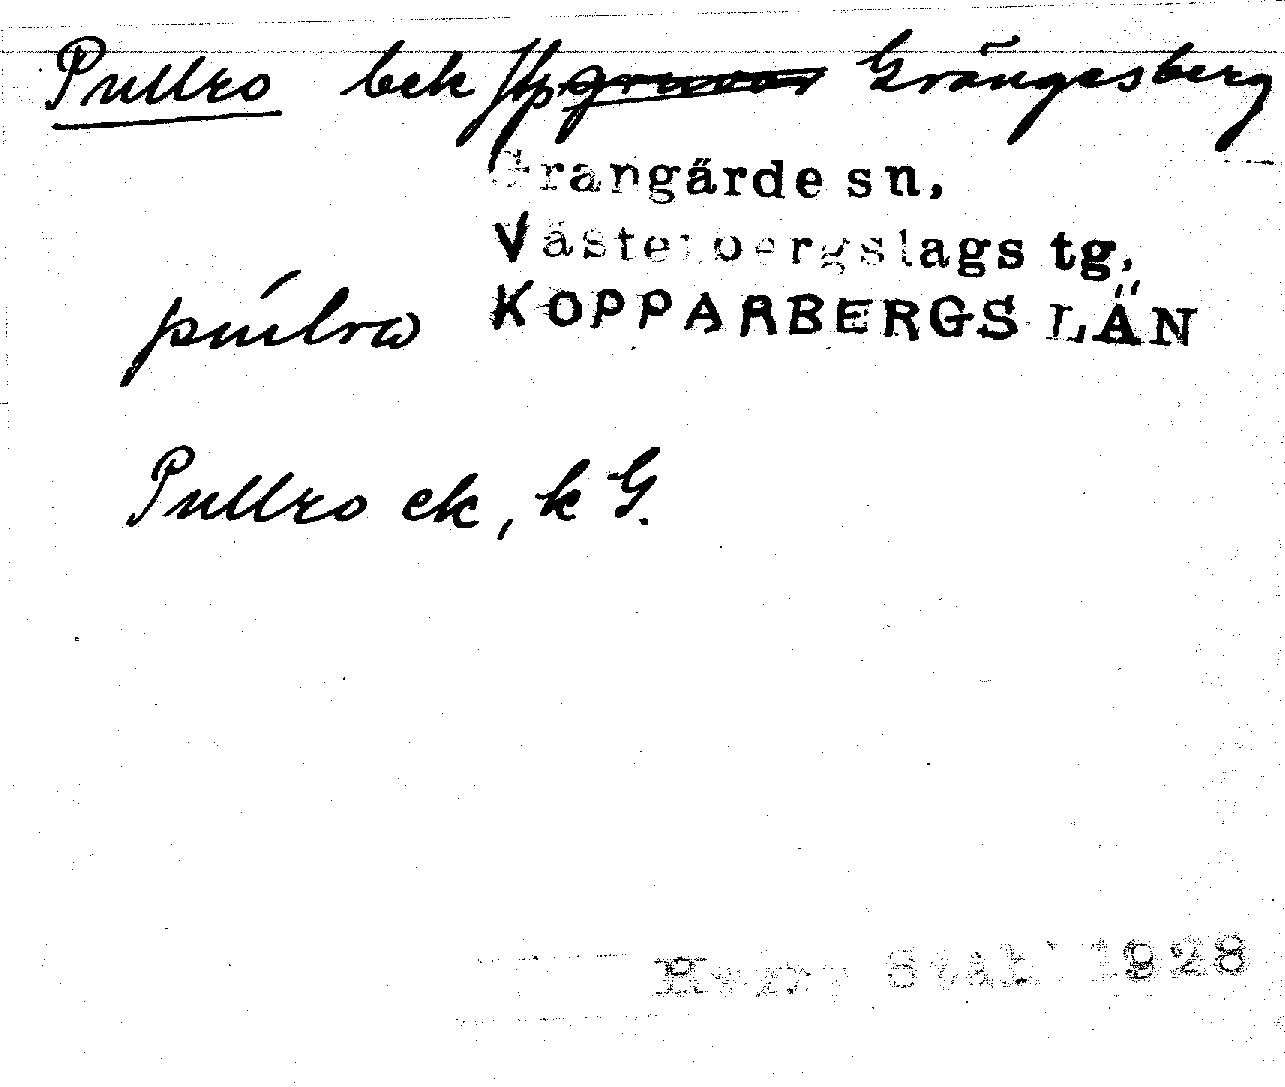 Pullro bek Hp. gruvor Grängesberg
Grangärde sn,
Västerbergslags tg,
KOPPARBERGS LÄN
Pullro ek, k G.
Harry Ståhl 1928